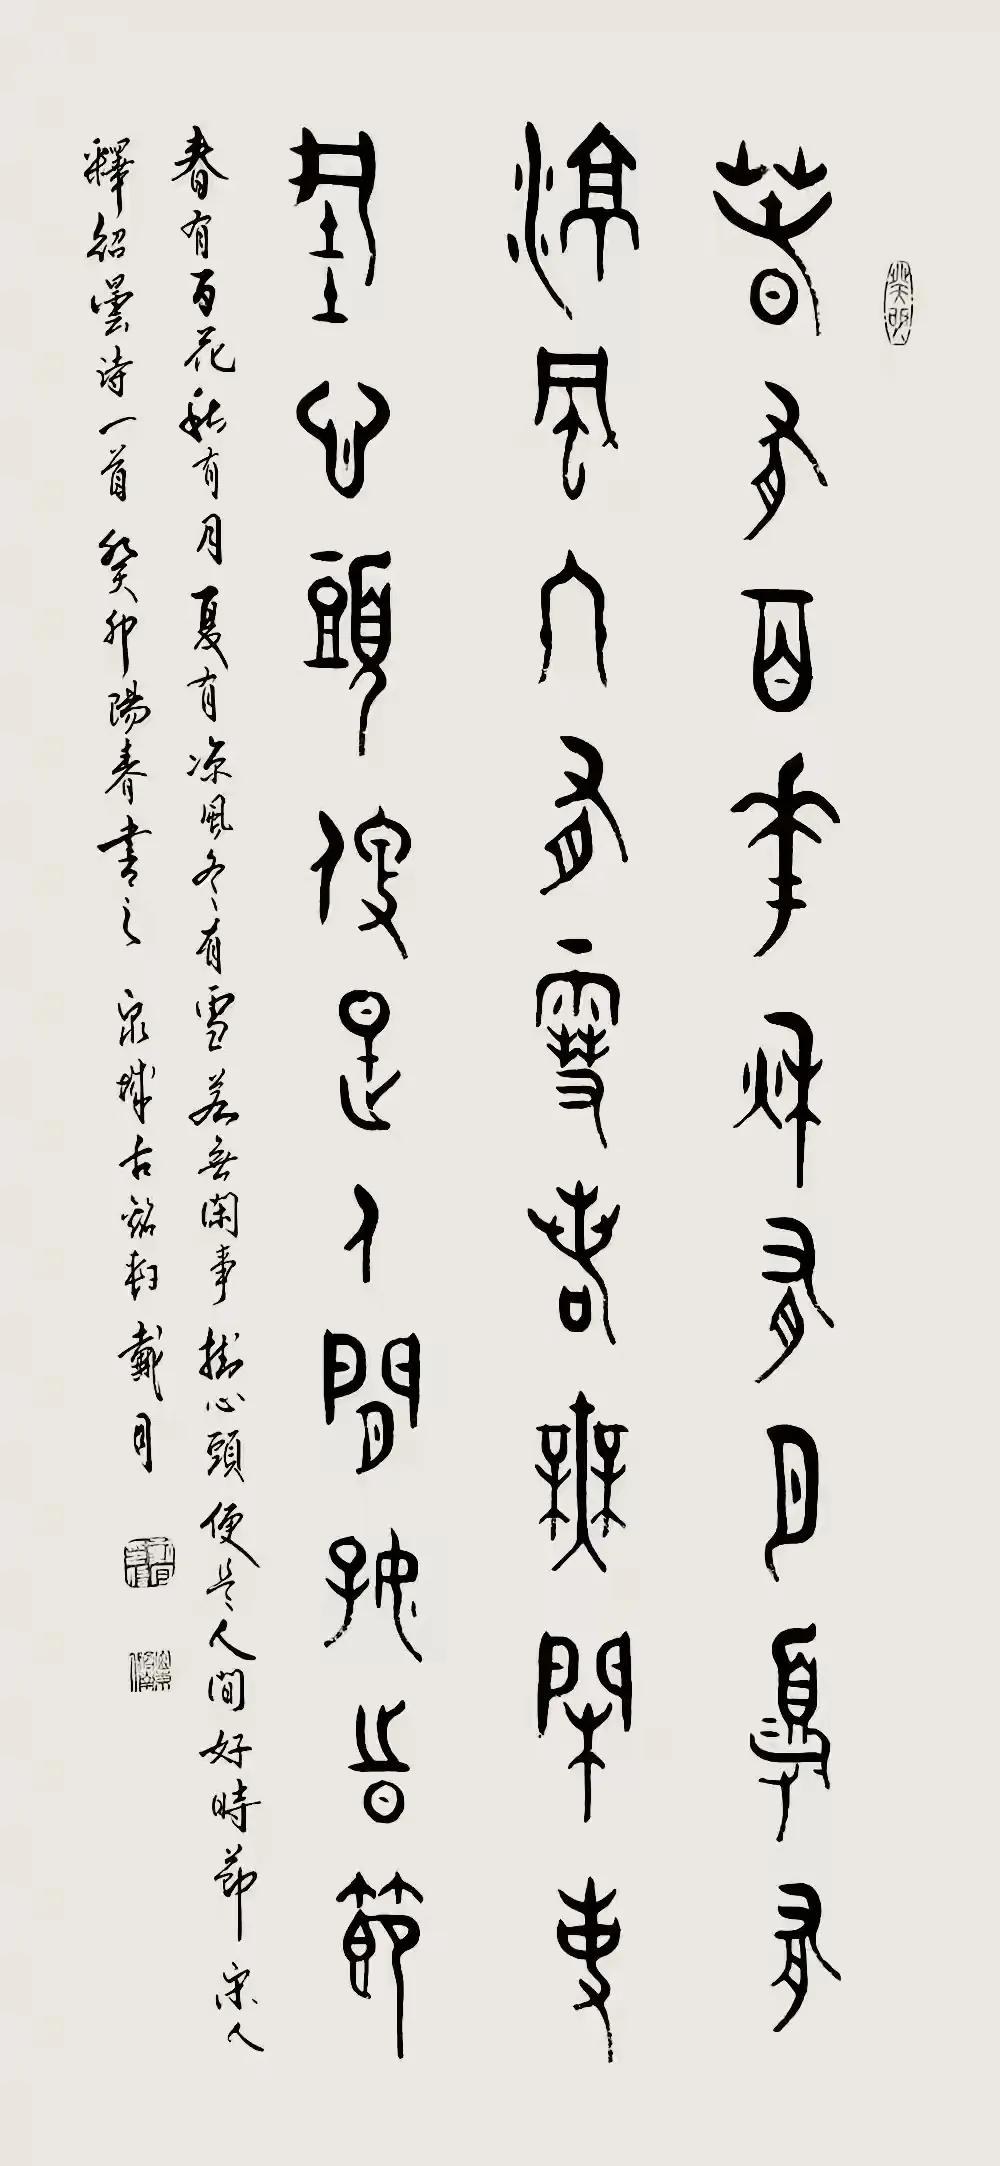 春有百花秋有月夏有
涼風冬有雪若無閑事
挂心頭便是人間好時節
春有百花秋有月夏有凉風冬有雪若無閑事掛心頭便是人間好時節 宋人
釋紹曇诗一首 癸卯陽春書之 泉城古銘軒戴月